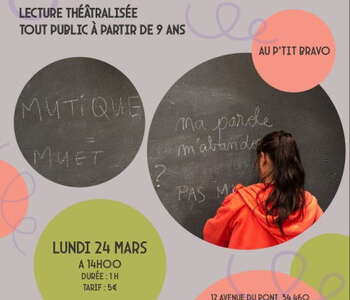 LECTURE THÉÂTRALISÉE
TOUT PUBLIC À PARTIR DE 9 ANS
AU P'TIT BRAVO
MUTIQUE
=
MUET
ma parole
m'abandon
?
PAS
LUNDI 24 MARS
A 14H00
DURÉE : 1 H
TARIF : 5€
12 AVENUE DU PONT 34 460